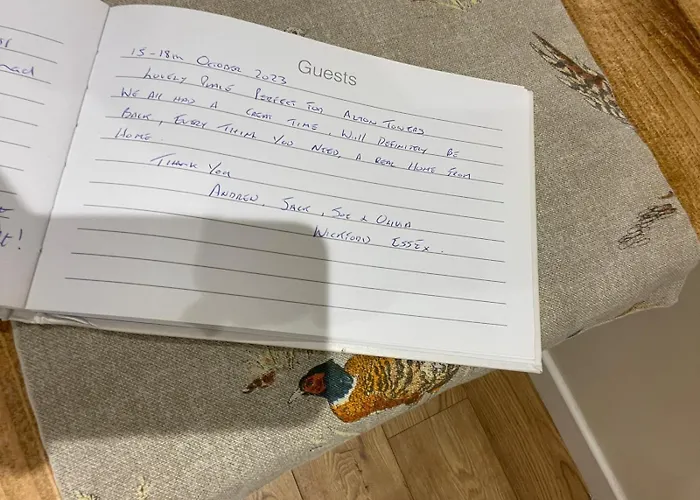 Guests
15-18th October 2023
Lovely Place Perfect for Alton Towers
We all had a great time, will definitely be
back, every think you need, a real home from
home
Thank you
Andrew, Jack, Sue & Olivia
Wickford Essex.